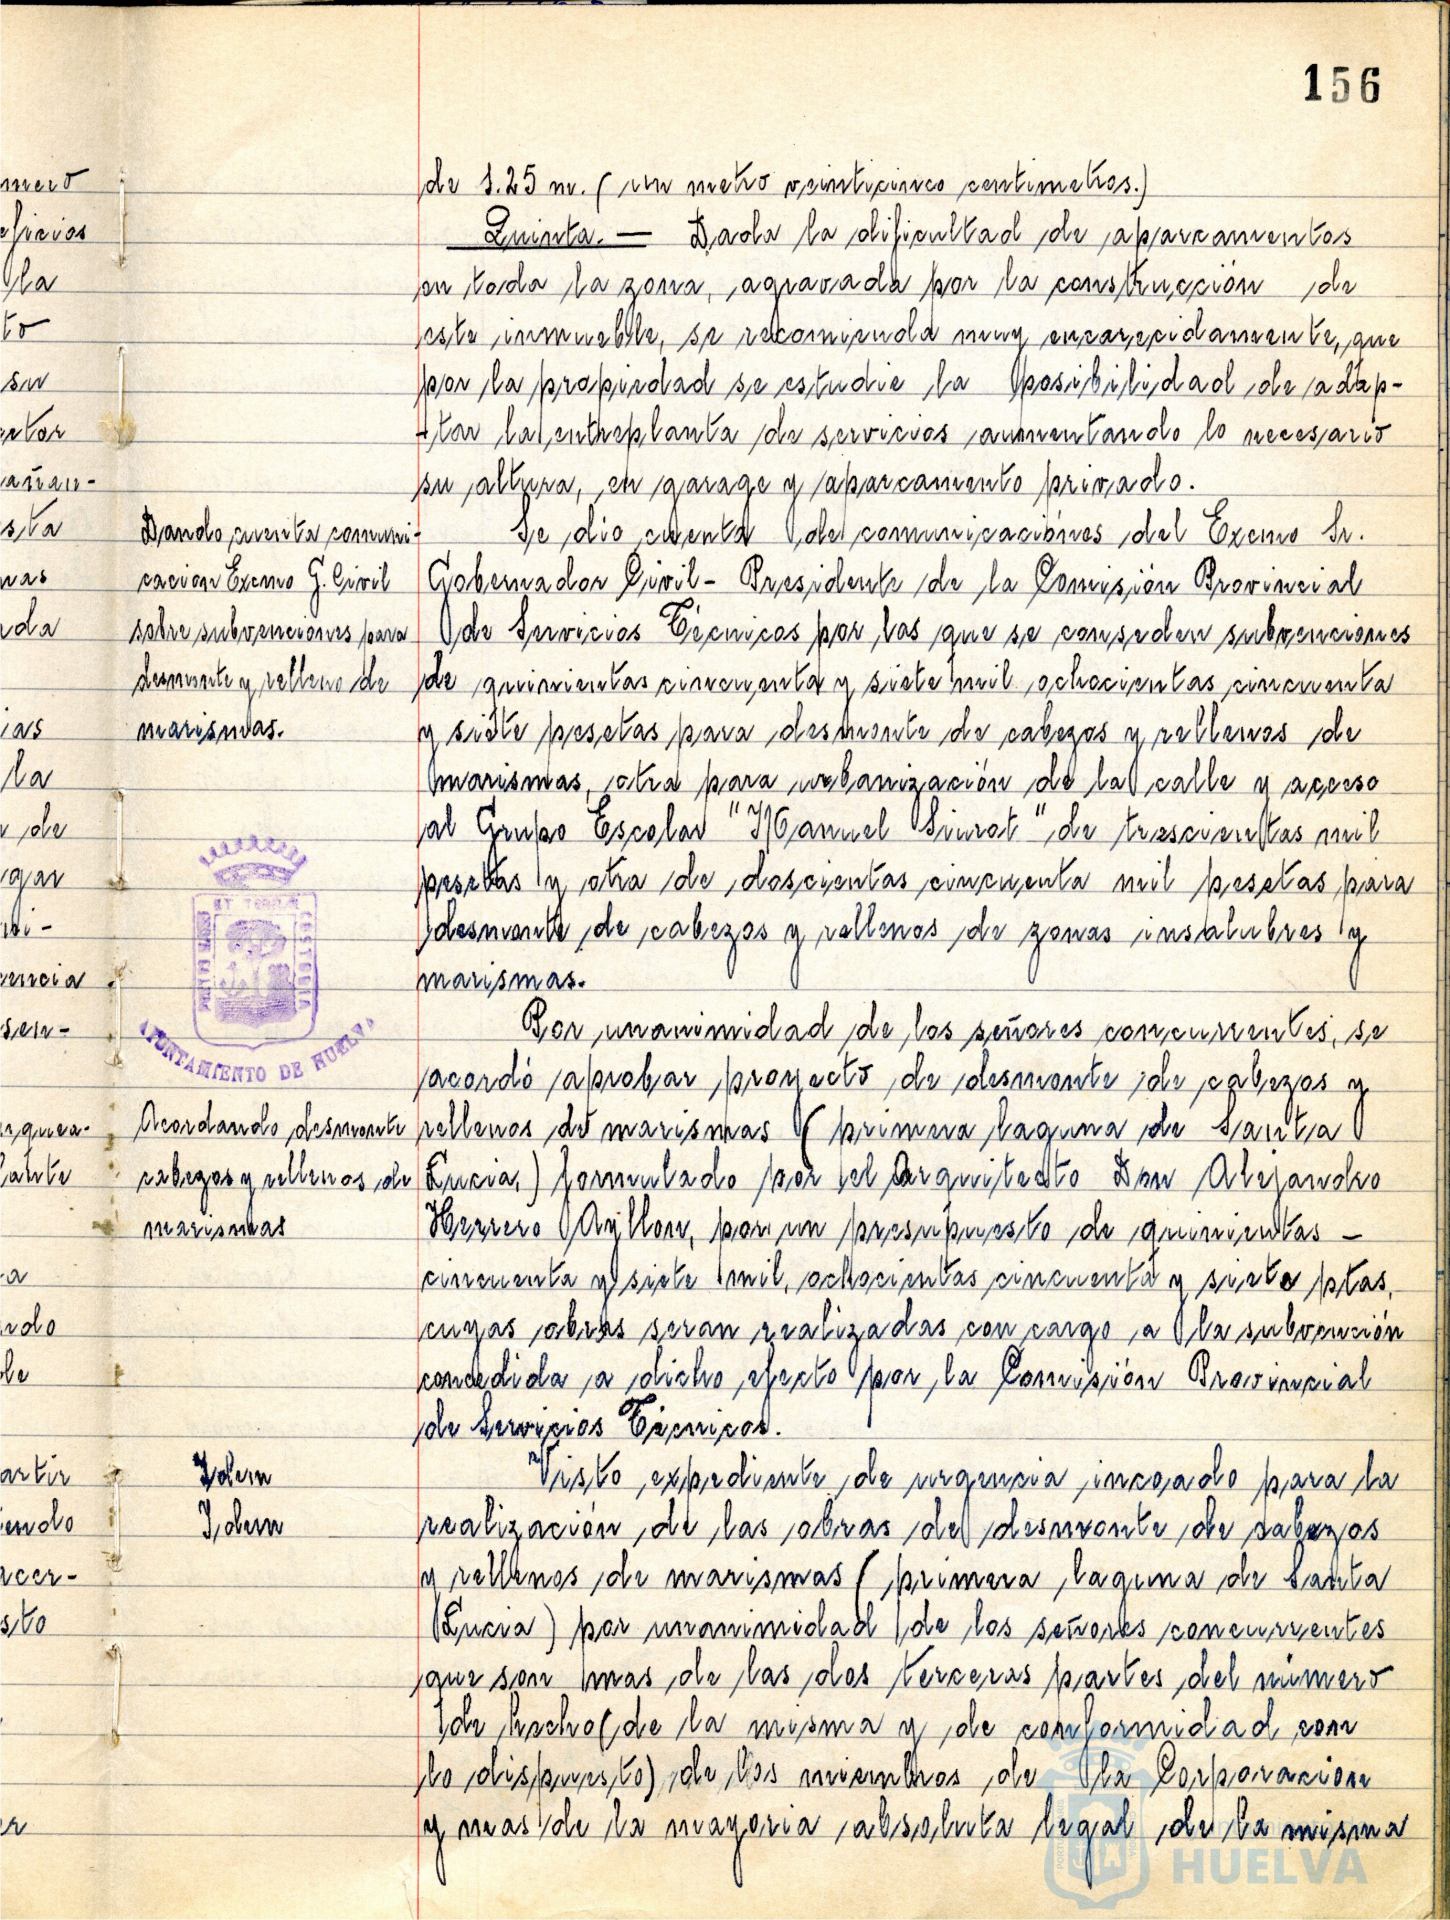 156
mero
eficios
la
to
su
ector
añan-
sta
nas
nda
ias
la
de
gar
ni-
encia
sen-
rquea-
lante
a
ndo
de
artir
iendo
acer-
sto
Dando cuenta comuni-
cacion Excmo G. Civil
sobre subvenciones para
desmonte y relleno de
marismas.
ET TERRAE
PORTUS MARIS
CUSTODIA
AYUNTAMIENTO DE HUELVA
Acordando desmonte
cabezos y rellenos de
marismas
Idem
Idem
de 1.25 m. ( un metro veinticinco centimetros.)
Quinta. — Dada la dificultad de aparcamentos
en toda la zona, agravada por la construcción de
este inmueble, se recomienda muy encarecidamente, que
por la propiedad se estudie la posibilidad de adap-
-tar la entreplanta de servicios aumentando lo necesario
su altura, en garage y aparcamento privado.
Se dio cuenta de comunicaciónes del Excmo Sr.
Gobernador Civil- Presidente de la Comisión Provincial
de Servicios Técnicos por las que se conseden subvenciones
de quinientas cincuenta y siete mil ochocientas cincuenta
y siete pesetas para desmonte de cabezos y rellenos de
marismas, otra para urbanización de la calle y acceso
al Grupo Escolar "Manuel Siurot" de trescientas mil
pesetas y otra de doscientas cincuenta mil pesetas para
desmonte de cabezos y rellenos de zonas insalubres y
marismas.
Por unanimidad de los señores concurrentes, se
acordó aprobar proyecto de desmonte de cabezos y
rellenos de marismas ( primera laguna de Santa
Lucia,) formulado por el Arquitecto Don Alejandro
Herrero Ayllon, por un presupuesto de quinientas -
cincuenta y siete mil, ochocientas cincuenta y siete ptas,
cuyas obras seran realizadas con cargo a la subvención
concedida a dicho efecto por la Comisión Provincial
de Servicios Técnicos.
Visto expediente de urgencia incoado para la
realización de las obras de desmonte de cabezos
y rellenos de marismas ( primera laguna de Santa
Lucia ) por unanimidad de los señores concurrentes
que son mas de las dos terceras partes del número
de hecho (de la misma y de conformidad con
lo dispuesto) de los miembros de la Corporacion
y mas de la mayoria absoluta legal de la misma
HUELVA